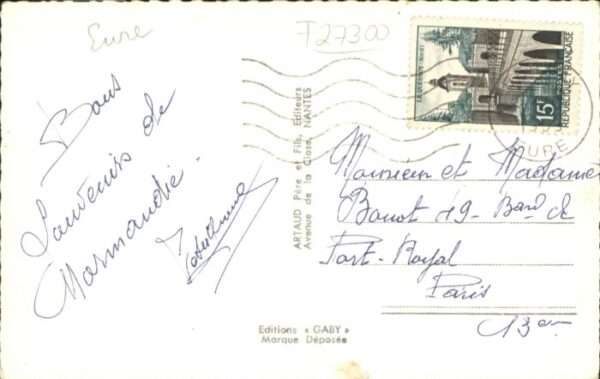 Eure
F27300
Bons
Souvenirs de
Normandie.
ARTAUD Père et Fils, Editeurs
Avenue de la Close, NANTES
Editions « GABY »
Marque Déposée
15F
REPUBLIQUE FRANÇAISE
EURE
Monsieur et Madame
Benoit 19 - Bard de
Port-Royal
Paris
13em